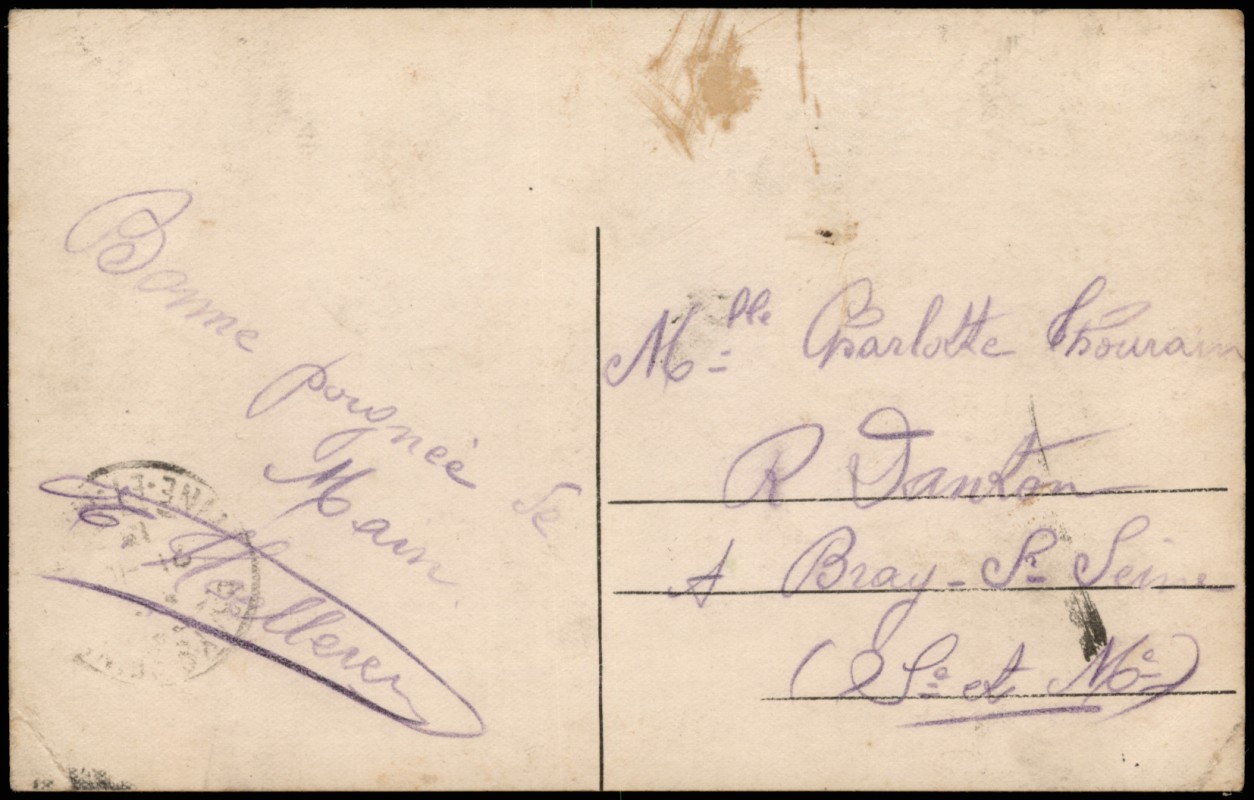 Bonne
poignée de
Main
E
Mlle Charlotte Thourain
R Danton
A Bray-Sr Seine
(Se et Me)